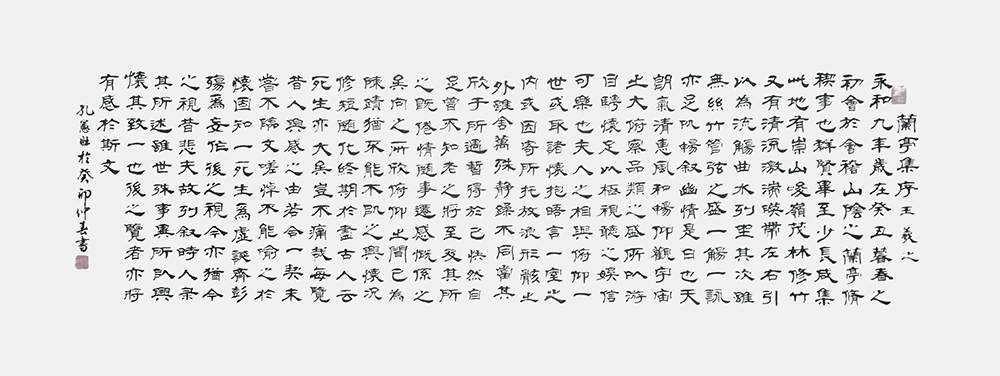 蘭亭集序王羲之
永和九年歲在癸丑暮春之
初會於會稽山陰之蘭亭脩
稧事也群賢畢至少長咸集
此地有崇山峻嶺茂林修竹
又有清流激湍暎帶左右引
以為流觴曲水列坐其次雖
無絲竹管弦之盛一觴一詠
亦足以暢叙幽情是日也天
朗氣清惠風和暢仰觀宇宙
之大俯察品類之盛所以游
目騁懷足以極視聽之娛信
可樂也夫人之相與俯仰一
世或取諸懷抱晤言一室之
內或因寄所托放浪形骸之
外雖舍萬殊静躁不同當其
欣于所遇暫得於己怏然自
足曾不知老之將至及其所
之既倦情隨事遷感慨係之
矣向之所欣俯仰之間已為
陳蹟猶不能不以之興懷況
修短隨化終期於盡古人云
死生亦大矣豈不痛哉每覽
昔人興感之由若合一契未
嘗不臨文嗟悼不能喻之於
懷固知一死生為虛誕齊彭
殤為妄作後之視今亦猶今
之視昔悲夫故列叙時人录
其所述雖世殊事異所以興
懷其致一也後之覽者亦將
有感於斯文
孔憲 於癸卯仲春書